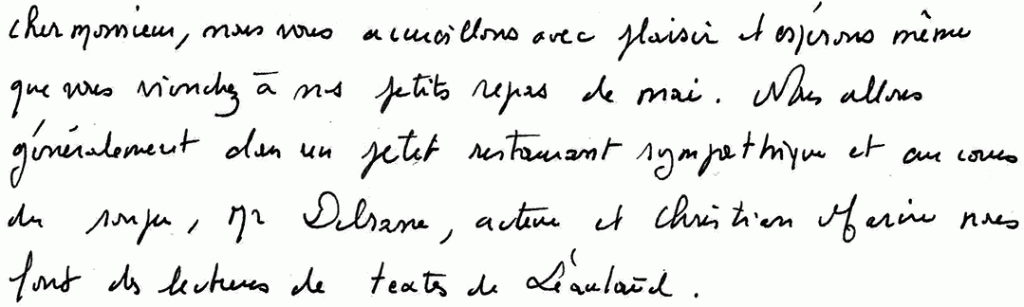 cher monsieur, nous vous accueillons avec plaisir et espérons même
que vous viendrez à nos petits repas de mai. Nous allons
généralement dans un petit restaurant sympathique et au cours
du souper, Mr Delsarre, acteur et Christian Marin nous
font des lectures de textes de Léautaud.